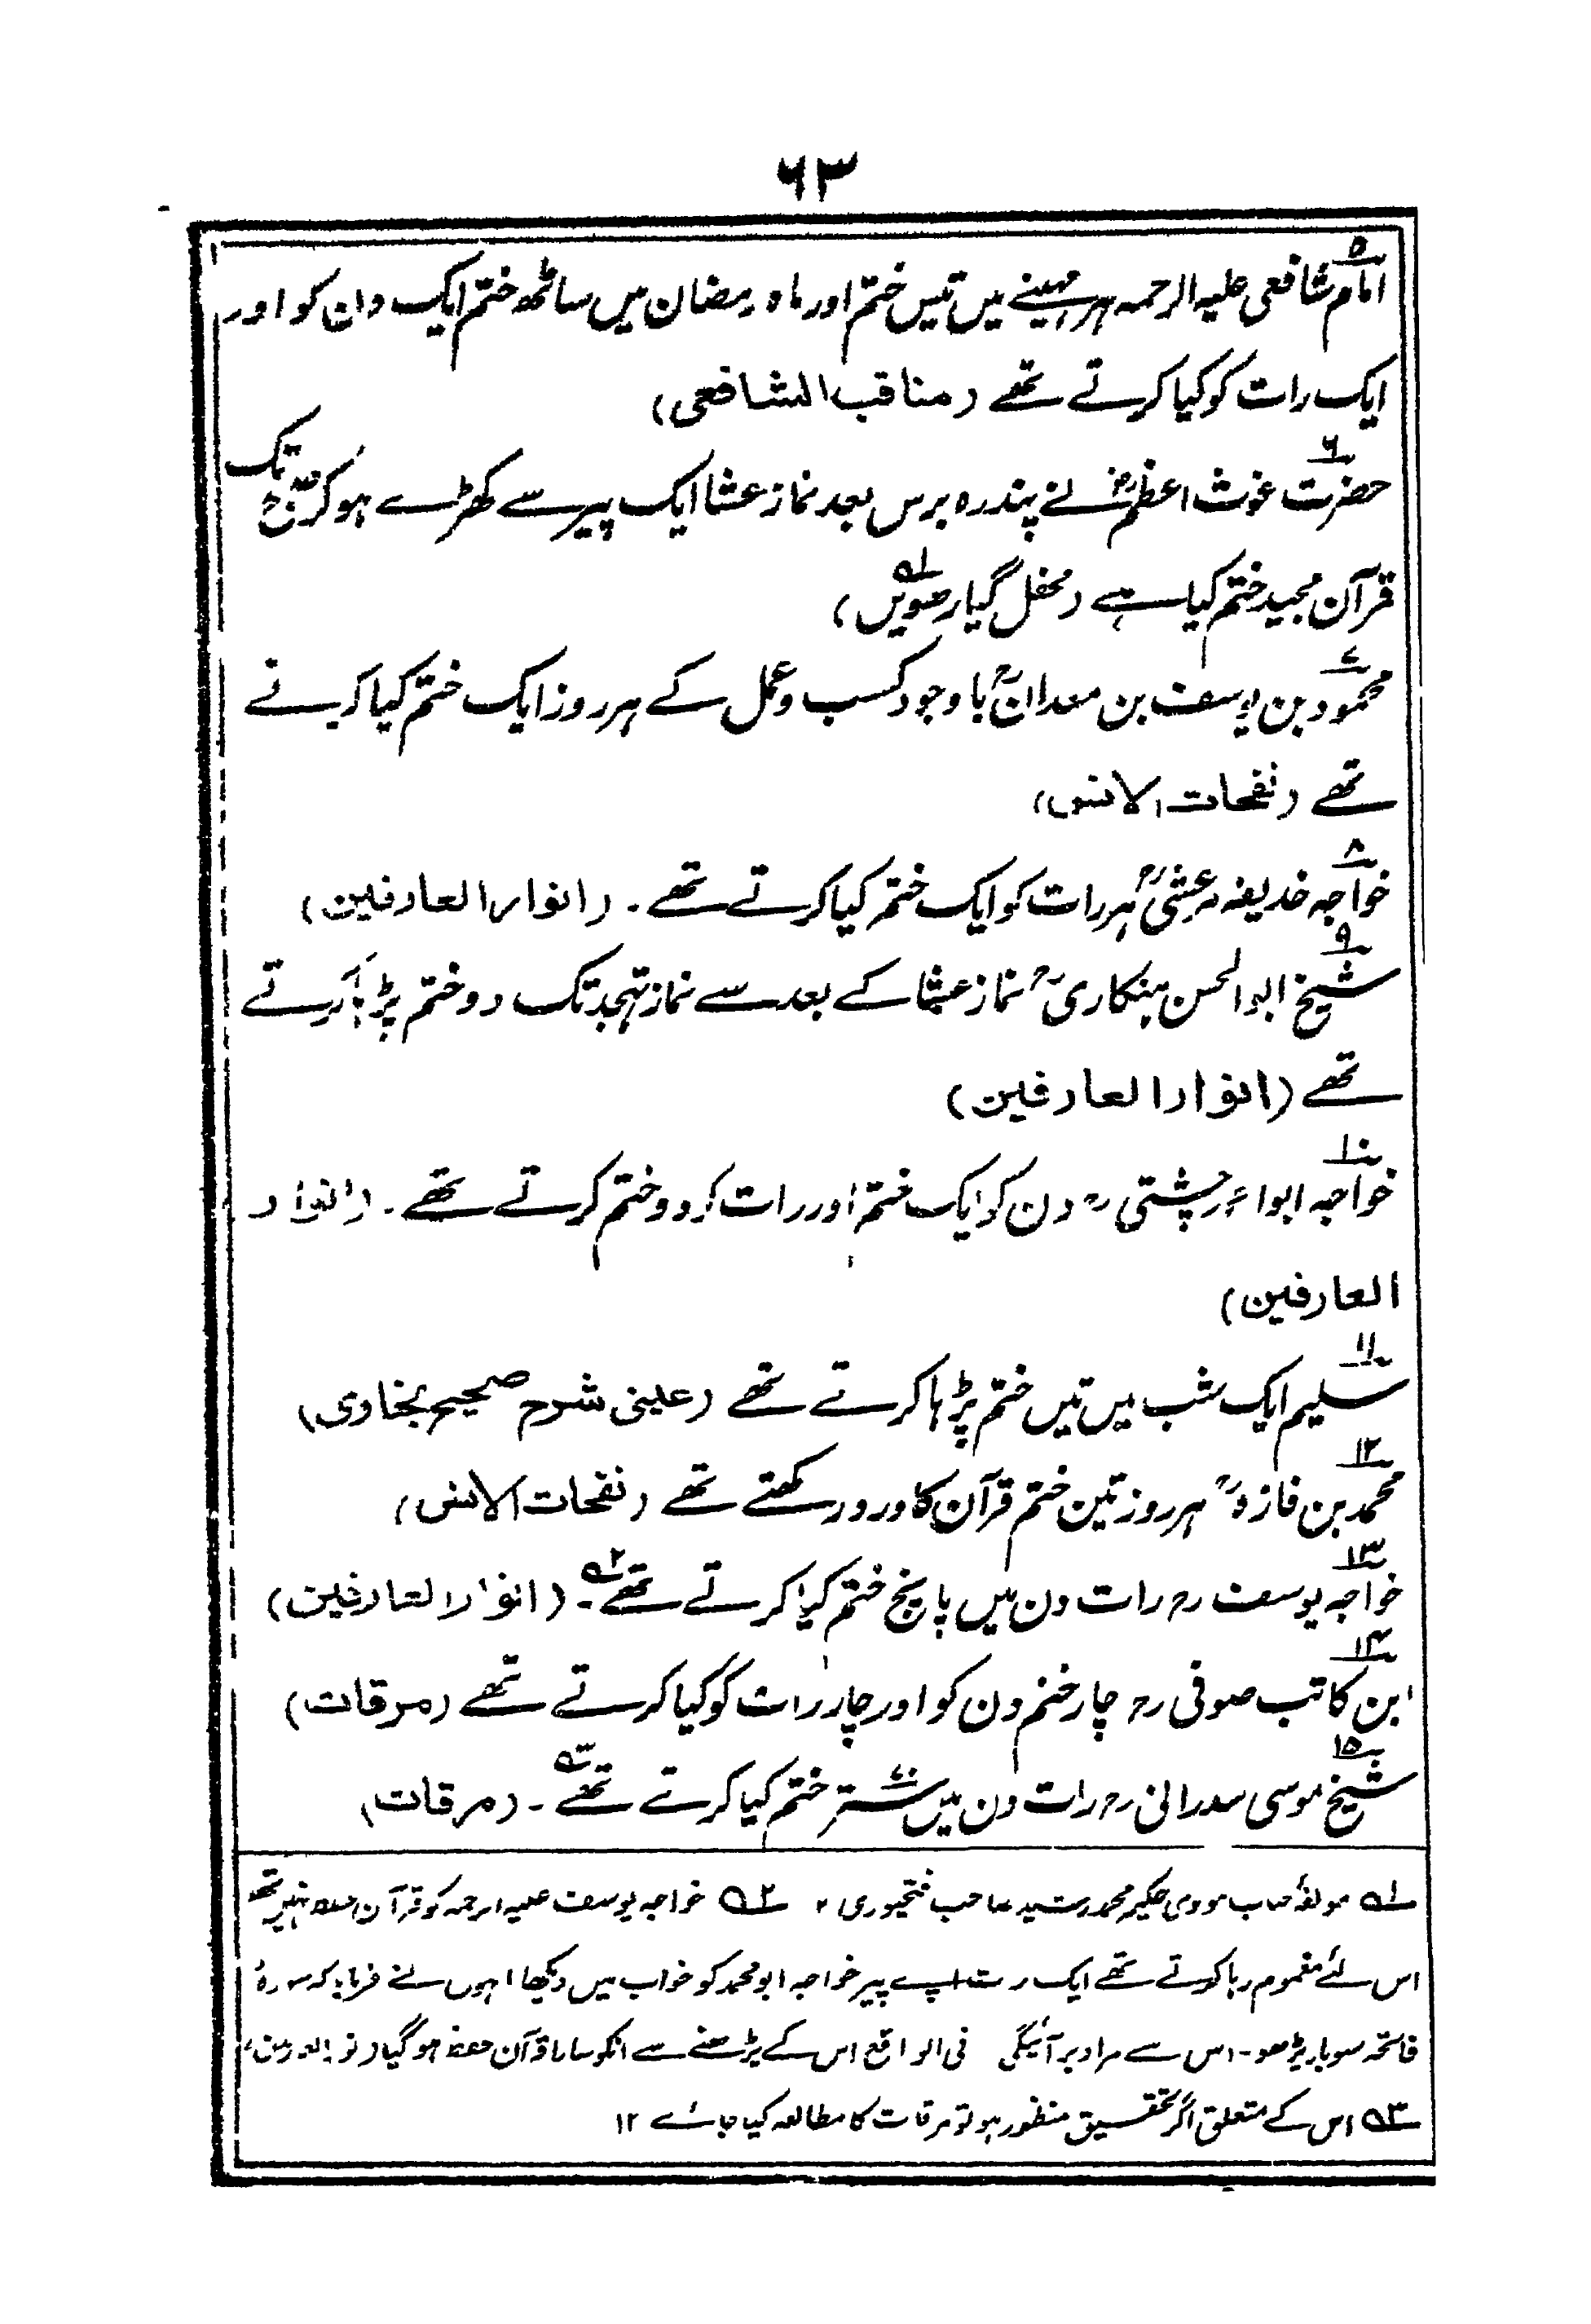 ۶۳
۵
امام شافعی علیہ الرحمہ ہر مہینے میں تیس ختم اور ماہ رمضان میں ساٹھ ختم ایک دن کو اور
ایک رات کو کیا کرتے تھے (مناقب الشافعی)
۶
حضرت غوث اعظمؓ نے پندرہ برس بعد نماز عشا ایک پیر سے کھڑے ہو کر صبح تک
قرآن مجید ختم کیا ہے (محفل گیارھویں ۱ھ)
۷
محمود بن یوسف بن معدانؒ باوجود کسب و عمل کے ہر روز ایک ختم کیا کرتے
تھے (نفحات الانس)
۸
خواجہ خدیفہ مرعشیؒ ہر رات کو ایک ختم کیا کرتے تھے۔ (انوار العارفین)
۹
شیخ ابوالحسن ہنکاریؒ نماز عشا کے بعد سے نماز تہجد تک دو ختم پڑہا کرتے
تھے (انوار العارفین)
۱۰
خواجہ ابوا چشتی رح دن کو ایک ختم اور رات کو دو ختم کرتے تھے۔ (انوار
العارفین)
۱۱
سلیم ایک شب میں تیں ختم پڑہا کرتے تھے (عینی شرح صحیح بخاری)
۱۲
محمد بن فازہؒ ہر روز تین ختم قرآن کا ورد رکھتے تھے (نفحات الانس)
۱۳
خواجہ یوسف رح رات دن میں پانچ ختم کیا کرتے تھے ۲ھ۔ (انوار العارفین)
۱۴
ابن کاتب صوفی رح چار ختم دن کو اور چار رات کو کیا کرتے تھے (مرقات)
۱۵
شیخ موسی سدرانی رح رات دن میں ستر ۷۰ ختم کیا کرتے تھے ۳ھ۔ (مرقات)
۱ھ مولفۂ جناب مولوی حکیم محمد رشید صاحب فتحپوری ۲ھ خواجہ یوسف علیہ الرحمہ کو قرآن حفظ نہیں تھا
اس لئے مغموم رہا کرتے تھے ایک رات اپنے پیر خواجہ ابو محمد کو خواب میں دیکھا انہوں نے فرمایا کہ سورۂ
فاتحہ سوبار پڑھو۔ اس سے مراد بر آئیگی فی الواقع اس کے پڑھنے سے انکو سارا قرآن حفظ ہو گیا (انوار العارفین)
۳ھ اس کے متعلق اگر تحقیق منظور ہو تو مرقات کا مطالعہ کیا جائے ۱۲